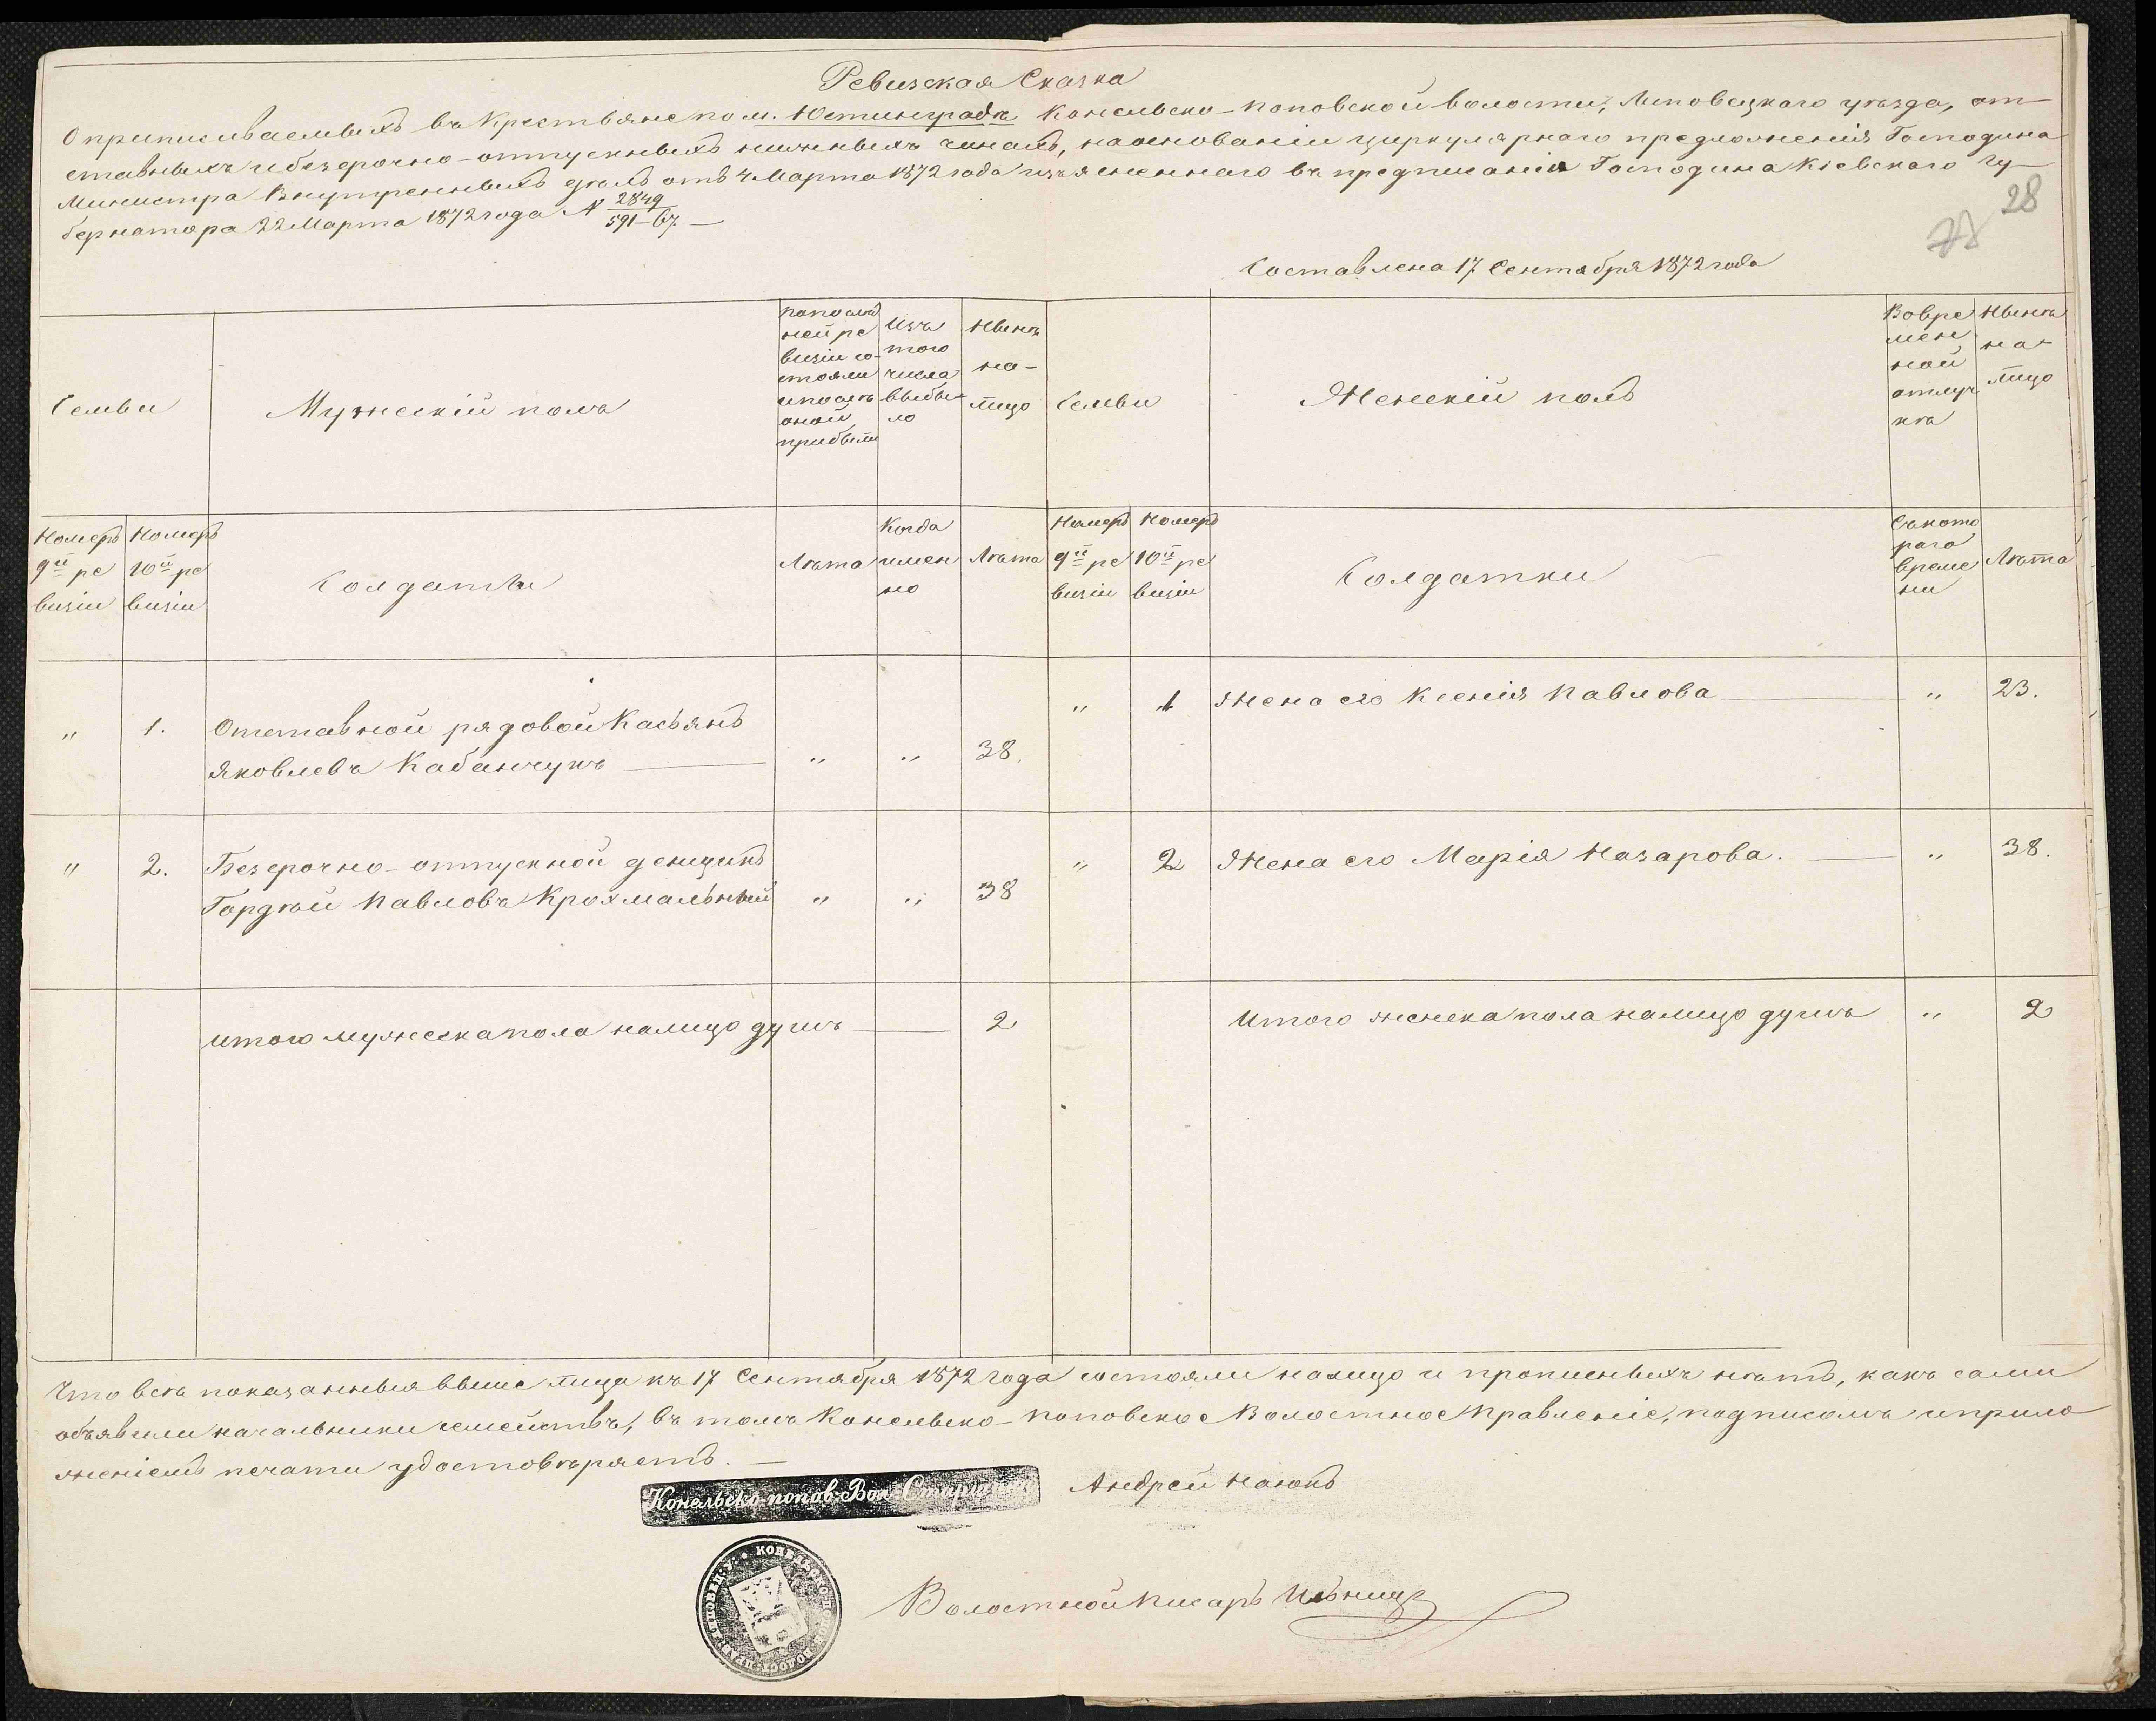 Ревизская Сказка
О приписываемыхъ въ Крестьяне по м. Юстинградѣ Конельско-Поповской волости, Липовецкаго уѣзда, от-
ставныхъ и безсрочно-отпускныхъ нижныхъ чинахъ, на основаніи циркулярнаго предложенія Господина
Министра Внутренныхъ дѣлъ отъ 4 Марта 1872 года изъясненнаго въ предписаніи Господина Кіевскаго Гу-
бернатора 22 Марта 1872 года № 2849
591–67. —
28
Составлена 17 Сентября 1872 года
Семьи
Мужескій полъ
По послѣд
ней ре
визіи со-
стояли
и послѣ
оной
прибыли
Изъ
того
числа
выбы-
ло
Нынѣ
на-
лицо
Семьи
Женскій полъ
Во вре
мен
ной
отлуч
кѣ
Нынѣ
на-
лицо
Номеръ
9й ре
визіи
Номеръ
10й ре
визіи
Солдаты
Лѣта
Когда
имен
но
Лѣта
Номеръ
9й ре
визіи
Номеръ
10й ре
визіи
Солдатки
Съ кото
раго
време
ни
Лѣта
" 1. Отставной рядовой Касьянъ
Яковлевъ Кабанчукъ " " 38.
" 1 Жена его Ксенія Павлова " 23.
" 2. Безсрочно-отпускной денщикъ
Гордѣй Павловъ Крохмальный " " 38
" 2 Жена его Марія Назарова. " 38.
итого мужеска пола налицо душъ 2
Итого женска пола налицо душъ " 2
Что всѣ показанныя выше лица къ 17 Сентября 1872 года состояли налицо и прописныхъ нѣтъ, какъ сами
объявили начальники семействъ, въ томъ Конельско-Поповское Волостное Правленіе, подписомъ и прило
женіемъ печати удостовѣряетъ. —
Конельско-попов: Вол: Старшина
Андрей Наюкъ
Волостной Писарь